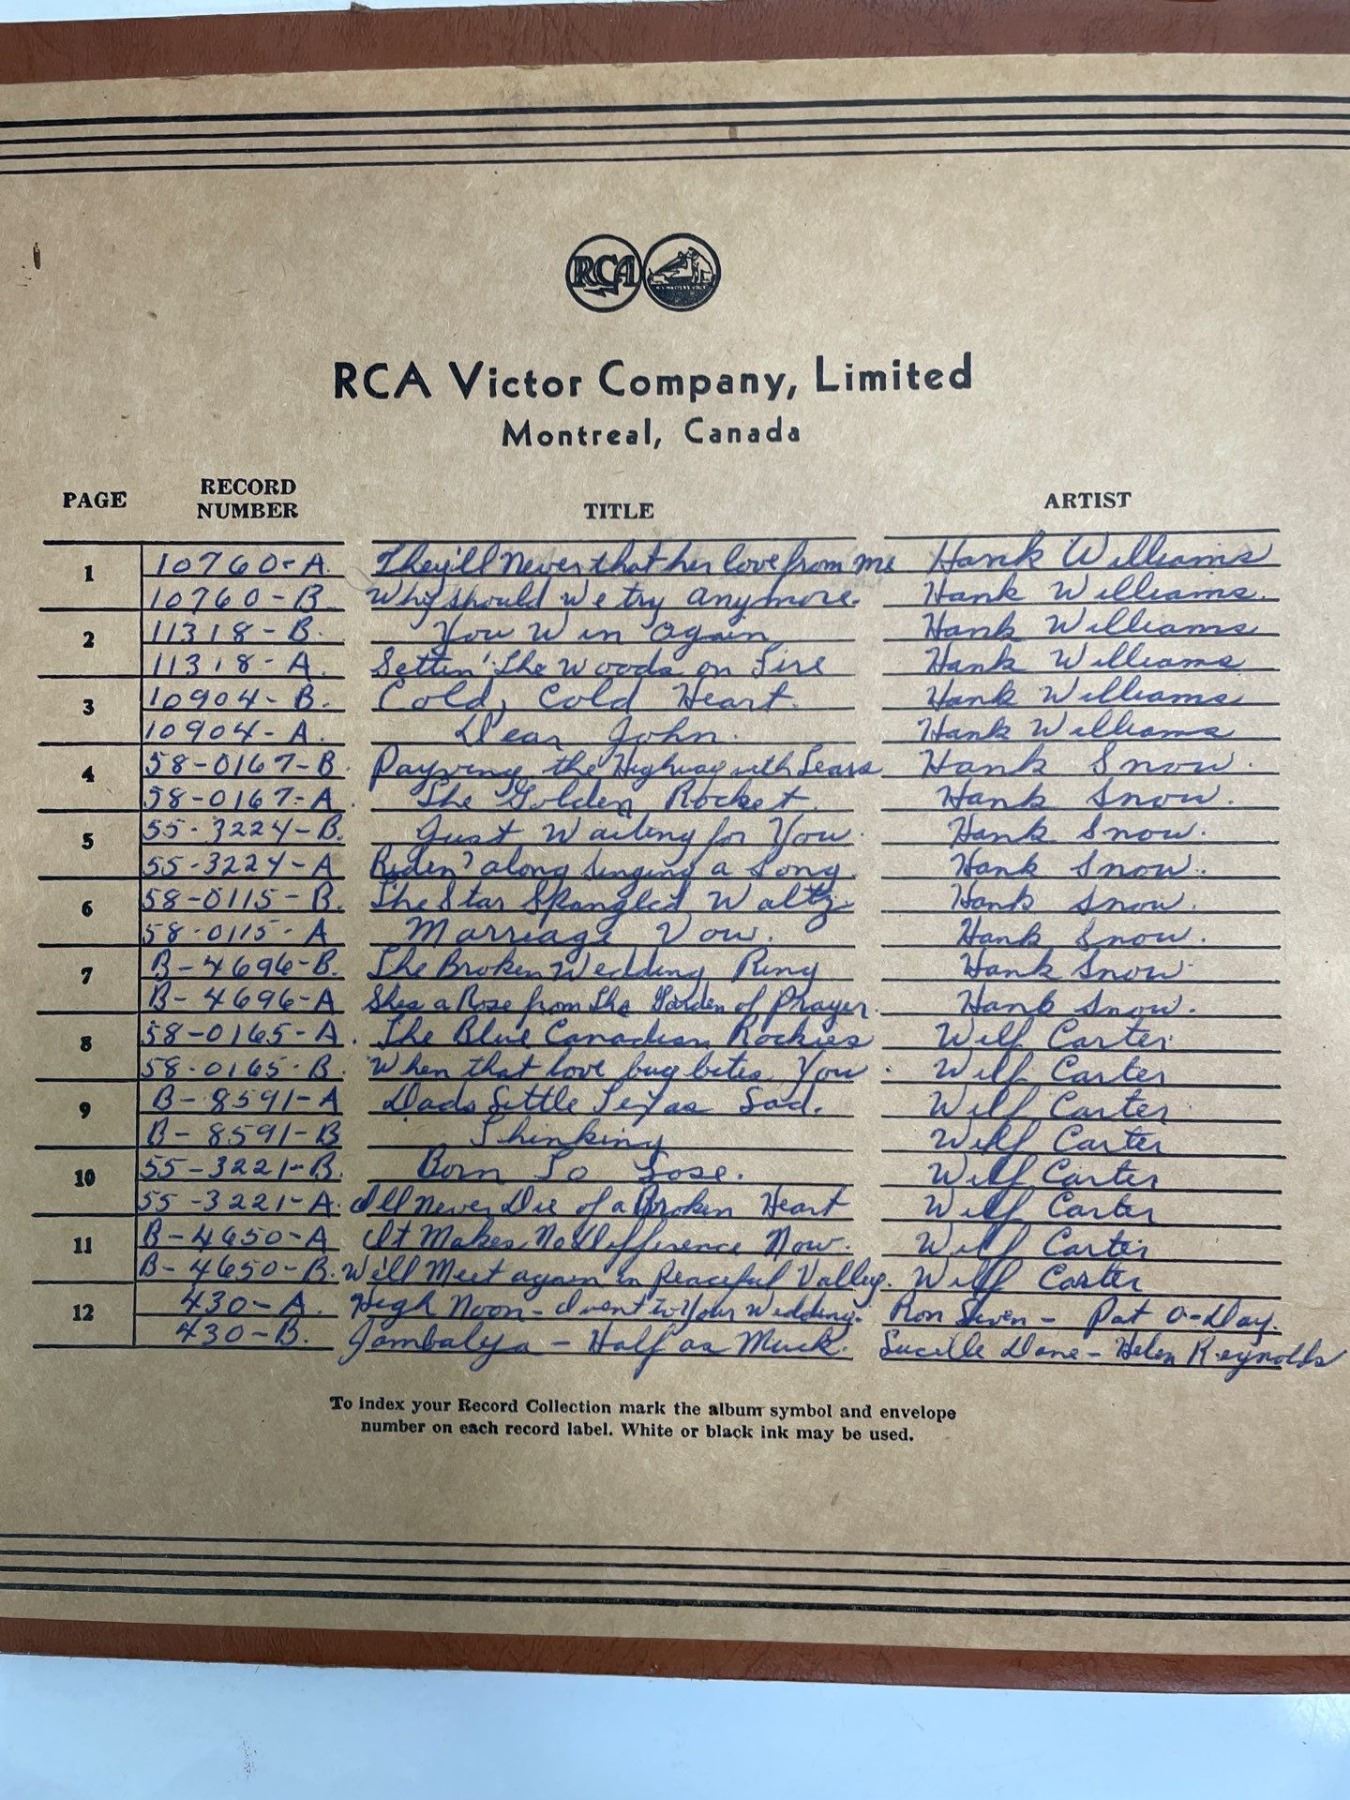 RCA
RCA Victor Company, Limited
Montreal, Canada
PAGE RECORD NUMBER TITLE ARTIST
1 10760-A. They'll Never that her love from me Hank Williams
10760-B Why should We try anymore. Hank Williams.
2 11318-B. You Win again Hank Williams
11318-A. Settin' The Woods on Fire Hank Williams
3 10904-B. Cold, Cold Heart. Hank Williams
10904-A. Dear John. Hank Williams
4 58-0167-B. the Highway with Tears Hank Snow.
58-0167-A. The Golden Rocket. Hank Snow.
5 55-3224-B. Just Waiting for You. Hank Snow.
55-3224-A Riden' along singing a Song. Hank Snow.
6 58-0115-B. The Star Spangled Waltz Hank Snow.
58-0115-A Marriage Vow. Hank Snow.
7 B-4696-B. The Broken Wedding Ring Hank Snow
B-4696-A Shes a Rose from The Garden of Prayer. Hank Snow.
8 58-0165-A. The Blue Canadian Rockies Wilf Carter
58-0165-B. When that love bug bites You. Wilf Carter
9 B-8591-A Dads Little Texas Lad. Wilf Carter
B-8591-B Thinking Wilf Carter
10 55-3221-B. Born To Lose. Wilf Carter
55-3221-A. I'll never Die of a Broken Heart Wilf Carter
11 B-4650-A It Makes No Difference Now. Wilf Carter
B-4650-B. We'll Meet again in Peaceful Valley. Wilf Carter
12 430-A. High Noon - I went to Your Wedding. Ron - Pat O-Day.
430-B. Jambalya - Half as Muck. Lucille Dane - Helen Reynolds
To index your Record Collection mark the album symbol and envelope
number on each record label. White or black ink may be used.